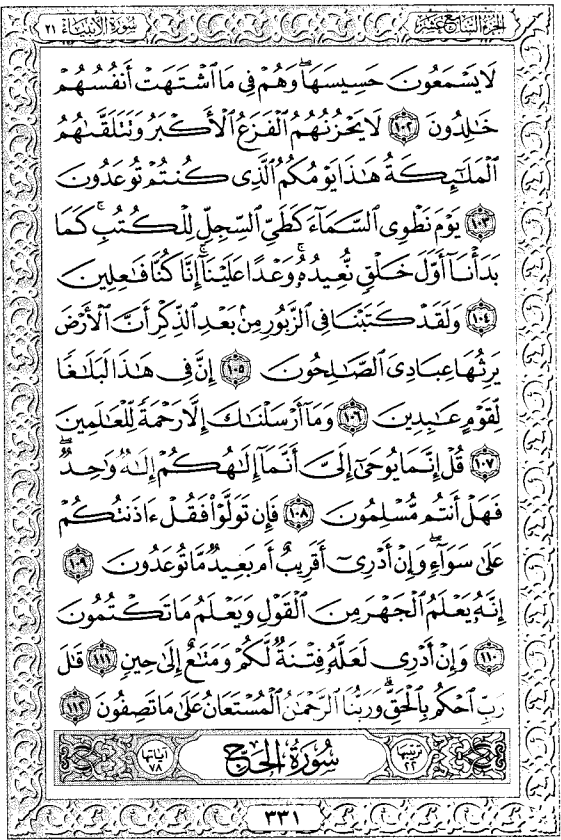 سُورَةُ الأَنبِيَاءِ ٢١ الجُزْءُ السَّابِعَ عَشَرَ
لَا يَسْمَعُونَ حَسِيسَهَا ۖ وَهُمْ فِي مَا ٱشْتَهَتْ أَنفُسُهُمْ
خَٰلِدُونَ ١٠٢ لَا يَحْزُنُهُمُ ٱلْفَزَعُ ٱلْأَكْبَرُ وَتَتَلَقَّىٰهُمُ
ٱلْمَلَٰٓئِكَةُ هَٰذَا يَوْمُكُمُ ٱلَّذِى كُنتُمْ تُوعَدُونَ
١٠٣ يَوْمَ نَطْوِى ٱلسَّمَآءَ كَطَىِّ ٱلسِّجِلِّ لِلْكُتُبِ ۚ كَمَا
بَدَأْنَآ أَوَّلَ خَلْقٍ نُّعِيدُهُۥ ۚ وَعْدًا عَلَيْنَآ ۚ إِنَّا كُنَّا فَٰعِلِينَ
١٠٤ وَلَقَدْ كَتَبْنَا فِى ٱلزَّبُورِ مِنۢ بَعْدِ ٱلذِّكْرِ أَنَّ ٱلْأَرْضَ
يَرِثُهَا عِبَادِىَ ٱلصَّٰلِحُونَ ١٠٥ إِنَّ فِى هَٰذَا لَبَلَٰغًا
لِّقَوْمٍ عَٰبِدِينَ ١٠٦ وَمَآ أَرْسَلْنَٰكَ إِلَّا رَحْمَةً لِّلْعَٰلَمِينَ
١٠٧ قُلْ إِنَّمَا يُوحَىٰٓ إِلَىَّ أَنَّمَآ إِلَٰهُكُمْ إِلَٰهٌ وَٰحِدٌ ۖ
فَهَلْ أَنتُم مُّسْلِمُونَ ١٠٨ فَإِن تَوَلَّوْا۟ فَقُلْ ءَاذَنتُكُمْ
عَلَىٰ سَوَآءٍ ۖ وَإِنْ أَدْرِىٓ أَقَرِيبٌ أَم بَعِيدٌ مَّا تُوعَدُونَ ١٠٩
إِنَّهُۥ يَعْلَمُ ٱلْجَهْرَ مِنَ ٱلْقَوْلِ وَيَعْلَمُ مَا تَكْتُمُونَ
١١٠ وَإِنْ أَدْرِى لَعَلَّهُۥ فِتْنَةٌ لَّكُمْ وَمَتَٰعٌ إِلَىٰ حِينٍ ١١١ قَٰلَ
رَبِّ ٱحْكُم بِٱلْحَقِّ ۗ وَرَبُّنَا ٱلرَّحْمَٰنُ ٱلْمُسْتَعَانُ عَلَىٰ مَا تَصِفُونَ ١١٢
ترتيبها ٢٢ سُورَةُ الحَجِّ آياتها ٧٨
٣٣١